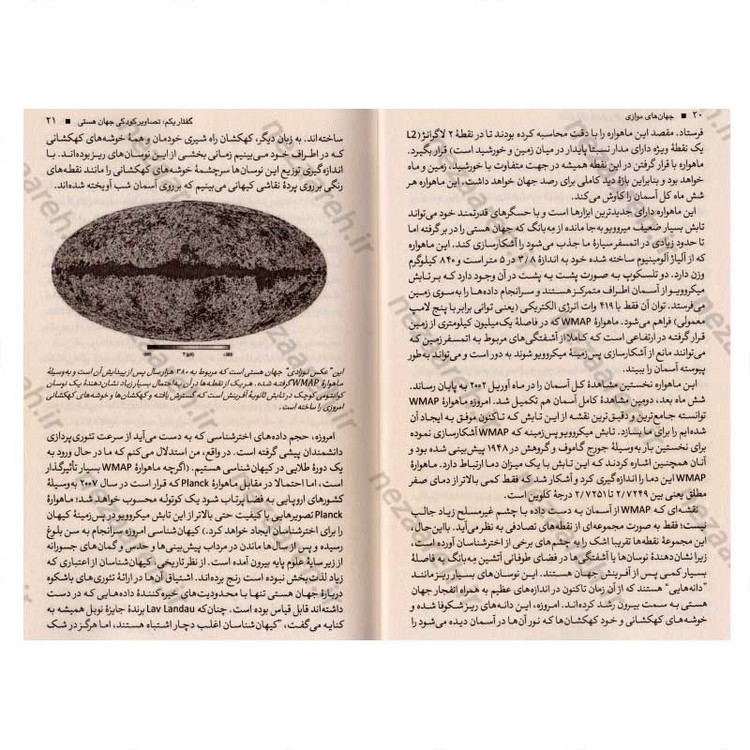 ۲۰ ■ جهان‌های موازی
فرستاد. مقصد این ماهواره را با دقت محاسبه کرده بودند تا در نقطهٔ ۲ لاگرانژ (L2
یک نقطهٔ ویژه دارای مدار نسبتاً پایدار در میان زمین و خورشید است) قرار بگیرد.
ماهواره با قرار گرفتن در این نقطه همیشه در جهت متفاوت با خورشید، زمین و ماه
خواهد بود و بنابراین بازهٔ دید کاملی برای رصد جهان خواهد داشت. این ماهواره هر
شش ماه کل آسمان را کاوش می‌کند.
این ماهواره دارای جدیدترین ابزارها است و با حسگرهای قدرتمند خود می‌تواند
تابش بسیار ضعیف میروویو به‌جا مانده از مِه‌بانگ که جهان هستی را در بر گرفته اما
تا حدود زیادی در اتمسفر سیارهٔ ما جذب می‌شود را آشکارسازی کند. این ماهواره
که از آلیاژ آلومینیوم ساخته شده خود به اندازهٔ ۳/۸ در ۵ متر است و ۸۴۰ کیلوگرم
وزن دارد. دو تلسکوپ به صورت پشت به پشت در آن وجود دارد که بر تابش
میکروویو از آسمان اطراف متمرکز هستند و سرانجام داده‌ها را به‌سوی زمین
می‌فرستد. توان آن فقط با ۴۱۹ وات انرژی الکتریکی (یعنی توانی برابر با پنج لامپ
معمولی) فراهم می‌شود. ماهوارهٔ WMAP که در فاصلهٔ یک‌میلیون کیلومتری از زمین
قرار گرفته در ارتفاعی است که کاملا از آشفتگی‌های مربوط به اتمسفر زمین که
می‌توانند مانع از آشکارسازی پس‌زمینهٔ میکروویو شوند به دور است و می‌تواند به‌طور
پیوسته آسمان را ببیند.
این ماهواره نخستین مشاهدهٔ کل آسمان را در ماه آوریل ۲۰۰۲ به پایان رساند.
شش ماه بعد، دومین مشاهدهٔ کامل آسمان هم تکمیل شد. امروزه ماهوارهٔ WMAP
توانسته جامع‌ترین و دقیق‌ترین نقشه از این تابش که تاکنون موفق به ایجاد آن
شده‌ایم را برای ما بسازد. تابش میکروویو پس‌زمینه که WMAP آشکارسازی نموده
برای نخستین بار به‌وسیلهٔ جورج گاموف و گروهش در ۱۹۴۸ پیش‌بینی شده بود و
آنان همچنین اشاره کردند که این تابش با یک میزان دما ارتباط دارد. ماهوارهٔ
WMAP این دما را اندازه‌گیری کرد و آشکار شد که فقط کمی بالاتر از دمای صفر
مطلق یعنی بین ۲/۷۲۴۹ تا ۲/۷۲۵۱ درجهٔ کلوین است.
نقشه‌ای که WMAP از آسمان به دست داده با چشم غیرمسلح زیاد جالب
نیست؛ فقط به صورت مجموعه‌ای از نقطه‌های تصادفی به نظر می‌آید. با‌این‌حال،
این مجموعهٔ نقطه‌ها تقریبا اشک را به چشم‌های برخی از اخترشناسان آورده است
زیرا نشان‌دهندهٔ نوسان‌ها یا آشفتگی‌ها در فضای طوفانی آتشین مِه‌بانگ به فاصلهٔ
بسیار کمی پس از آفرینش جهان هستند. این نوسان‌های بسیار ریز مانند
"دانه‌هایی" هستند که از آن زمان تاکنون در اندازه‌های عظیم به همراه انفجار جهان
هستی به سمت بیرون رشد کرده‌اند. امروزه، این دانه‌های ریز شکوفا شده و
خوشه‌های کهکشانی و خود کهکشان‌ها که نور آن‌ها در آسمان دیده می‌شود را
گفتار یکم: تصاویر کودکی جهان هستی ■ ۲۱
ساخته‌اند. به زبان دیگر، کهکشان راه شیری خودمان و همهٔ خوشه‌های کهکشانی
که در اطراف خود می‌بینیم زمانی بخشی از این نوسان‌های ریز بوده‌اند. با
اندازه‌گیری توزیع این نوسان‌ها سرچشمهٔ خوشه‌های کهکشانی را مانند نقطه‌های
رنگی بر روی پردهٔ نقاشی کیهانی می‌بینیم که بر روی آسمان شب آویخته شده‌اند.
این "عکس نوزادی" جهان هستی است که مربوط به ۳۸۰ هزار سال پس از پیدایش آن است و به‌وسیلهٔ
ماهوارهٔ WMAP گرفته شده. هر یک از نقطه‌ها در آن به‌احتمال بسیار زیاد نشان‌دهندهٔ یک نوسان
کوانتومی کوچک در تابش ثانویهٔ آفرینش است که گسترش یافته و کهکشان‌ها و خوشه‌های کهکشانی
امروزی را ساخته است.
امروزه، حجم داده‌های اخترشناسی که به دست می‌آید از سرعت تئوری‌پردازی
دانشمندان پیشی گرفته است. در واقع، من استدلال می‌کنم که ما در حال ورود به
یک دورهٔ طلایی در کیهان‌شناسی هستیم. (اگرچه ماهوارهٔ WMAP بسیار تأثیرگذار
است، اما احتمالا در مقابل ماهوارهٔ Planck که قرار است در سال ۲۰۰۷ به‌وسیلهٔ
کشورهای اروپایی به فضا پرتاب شود یک کوتوله محسوب خواهد شد؛ ماهوارهٔ
Planck تصویرهایی با کیفیت حتی بالاتر از این تابش میکروویو در پس‌زمینهٔ کیهان
را برای اخترشناسان ایجاد خواهد کرد.) کیهان‌شناسی امروزه سرانجام به سن بلوغ
رسیده و پس از سال‌ها ماندن در مرداب پیش‌بینی‌ها و حدس و گمان‌های جسورانه
از زیر سایهٔ علوم پایه بیرون آمده است. از نظر تاریخی، کیهان‌شناسان از اعتباری که
زیاد لذت‌بخش نبوده است رنج برده‌اند. اشتیاق آن‌ها در ارائهٔ تئوری‌های باشکوه
دربارهٔ جهان هستی تنها با محدودیت‌های خیره‌کنندهٔ داده‌هایی که در دست
داشته‌اند قابل قیاس بوده است. چنان‌که Lav Landau برندهٔ جایزهٔ نوبل همیشه به
کنایه می‌گفت، "کیهان‌شناسان اغلب دچار اشتباه هستند، اما هرگز در شک
nezaareh.ir